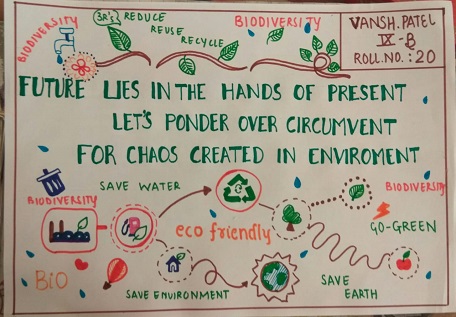 BIODIVERSITY
3R's REDUCE
REUSE
RECYCLE
BIODIVERSITY
VANSH. PATEL
IX-B
ROLL.NO.: 20
FUTURE LIES IN THE HANDS OF PRESENT
LET'S PONDER OVER CIRCUMVENT
FOR CHAOS CREATED IN ENVIROMENT
SAVE WATER
BIODIVERSITY
BIODIVERSITY
eco friendly
GO-GREEN
BiO
SAVE ENVIRONMENT
SAVE
EARTH